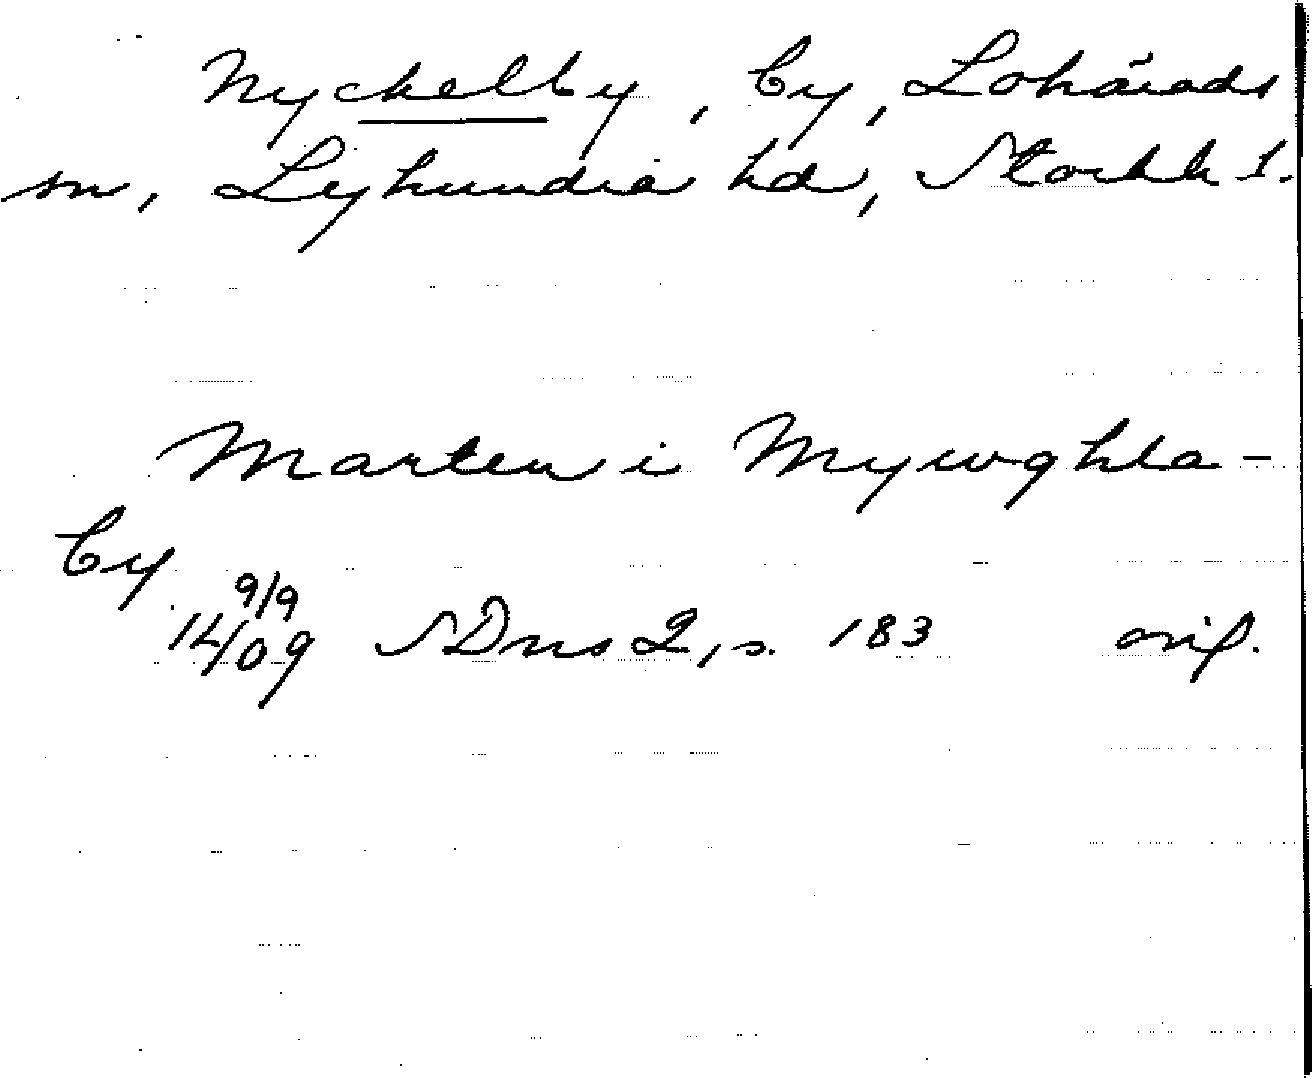 Nyckelby, by, Lohärads
sn, Lyhundra hd, Stockh l.
Marten i Mywghla-
by
9/9
14/09 SDns 2, s. 183 orig.